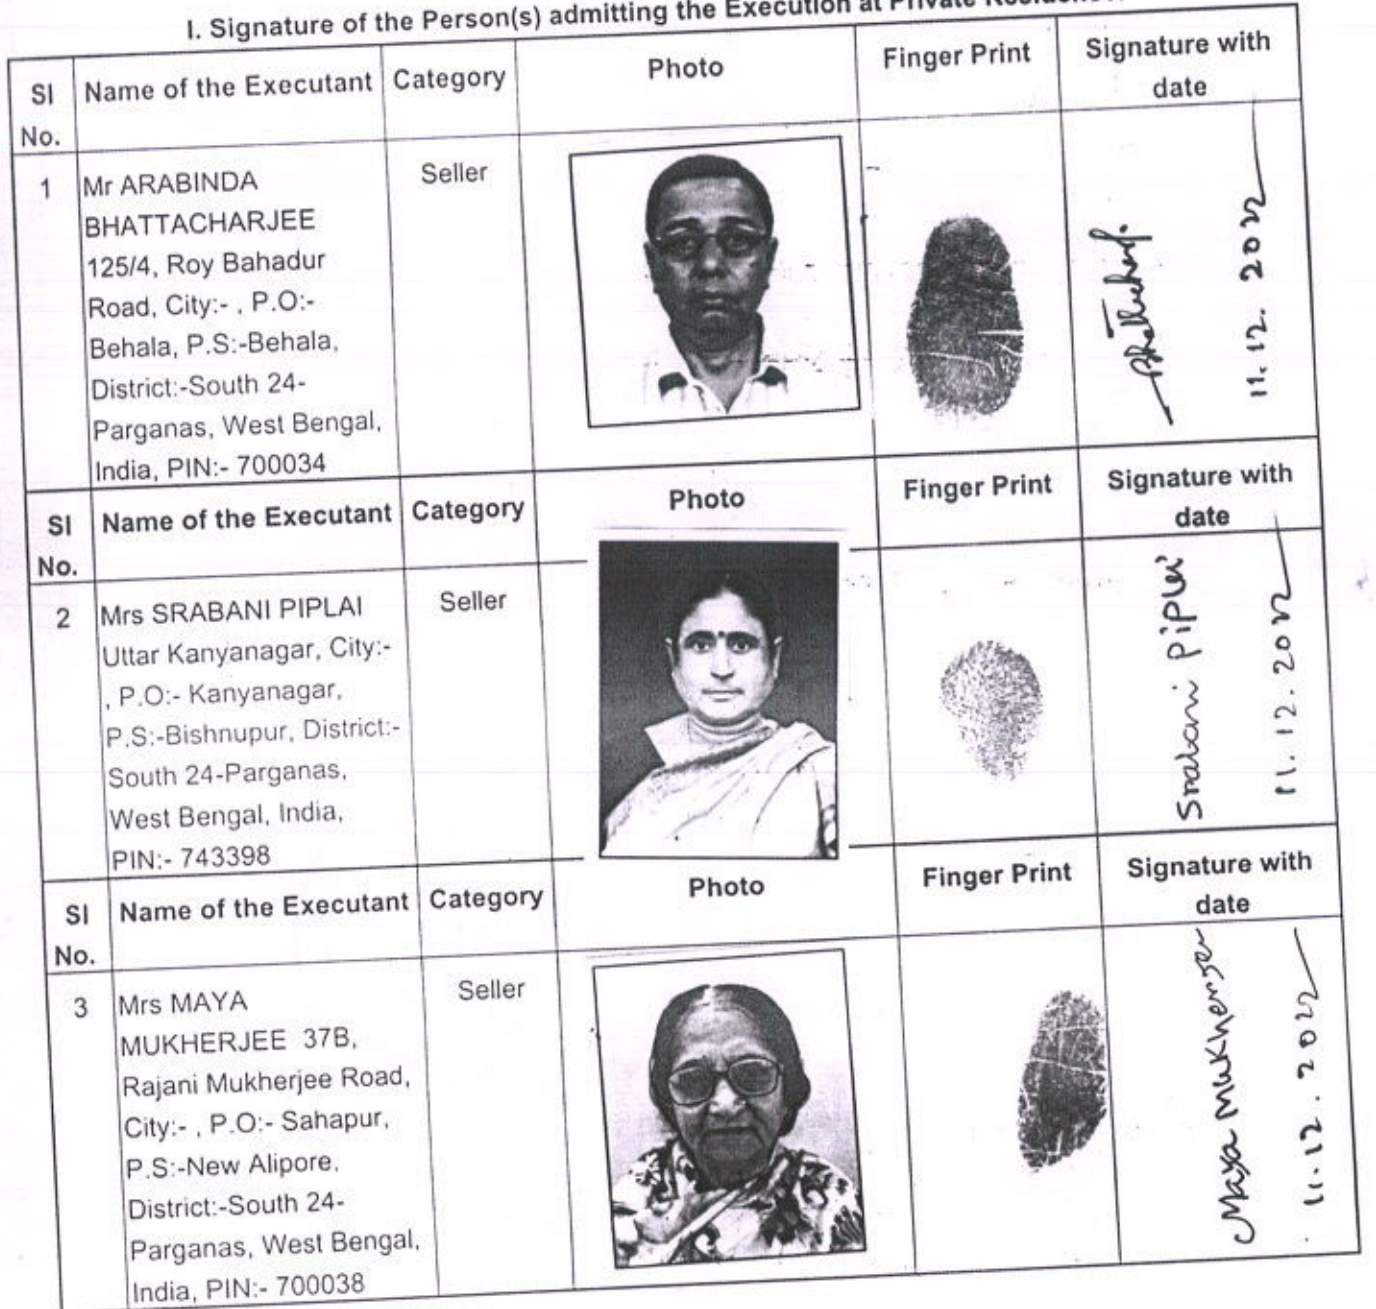 I. Signature of the Person(s) admitting the Execution at Private
Sl No. Name of the Executant Category Photo Finger Print Signature with date
1 Mr ARABINDA Seller
BHATTACHARJEE
125/4, Roy Bahadur
Road, City:- , P.O:-
Behala, P.S:-Behala,
District:-South 24-
Parganas, West Bengal,
India, PIN:- 700034
11.12.2022
Sl No. Name of the Executant Category Photo Finger Print Signature with date
2 Mrs SRABANI PIPLAI Seller
Uttar Kanyanagar, City:-
, P.O:- Kanyanagar,
P.S:-Bishnupur, District:-
South 24-Parganas,
West Bengal, India,
PIN:- 743398
Srabani Piplai
11.12.2022
Sl No. Name of the Executant Category Photo Finger Print Signature with date
3 Mrs MAYA Seller
MUKHERJEE 37B,
Rajani Mukherjee Road,
City:- , P.O:- Sahapur,
P.S:-New Alipore,
District:-South 24-
Parganas, West Bengal,
India, PIN:- 700038
Maya Mukherjee
11.12.2022